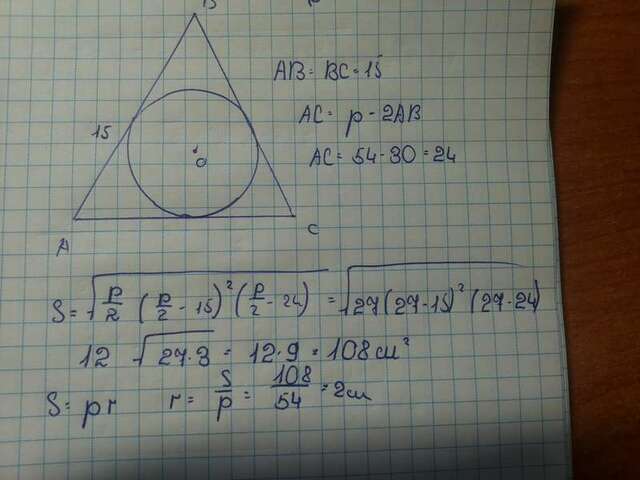 B
AB = BC = 15
15
AC = p - 2AB
O
AC = 54 - 30 = 24
A
C
S = √(p/2 (p/2 - 15)² (p/2 - 24)) = √(27(27-15)² (27-24))
12 √(27·3) = 12·9 = 108 см²
S = pr r = S/p = 108/54 = 2см